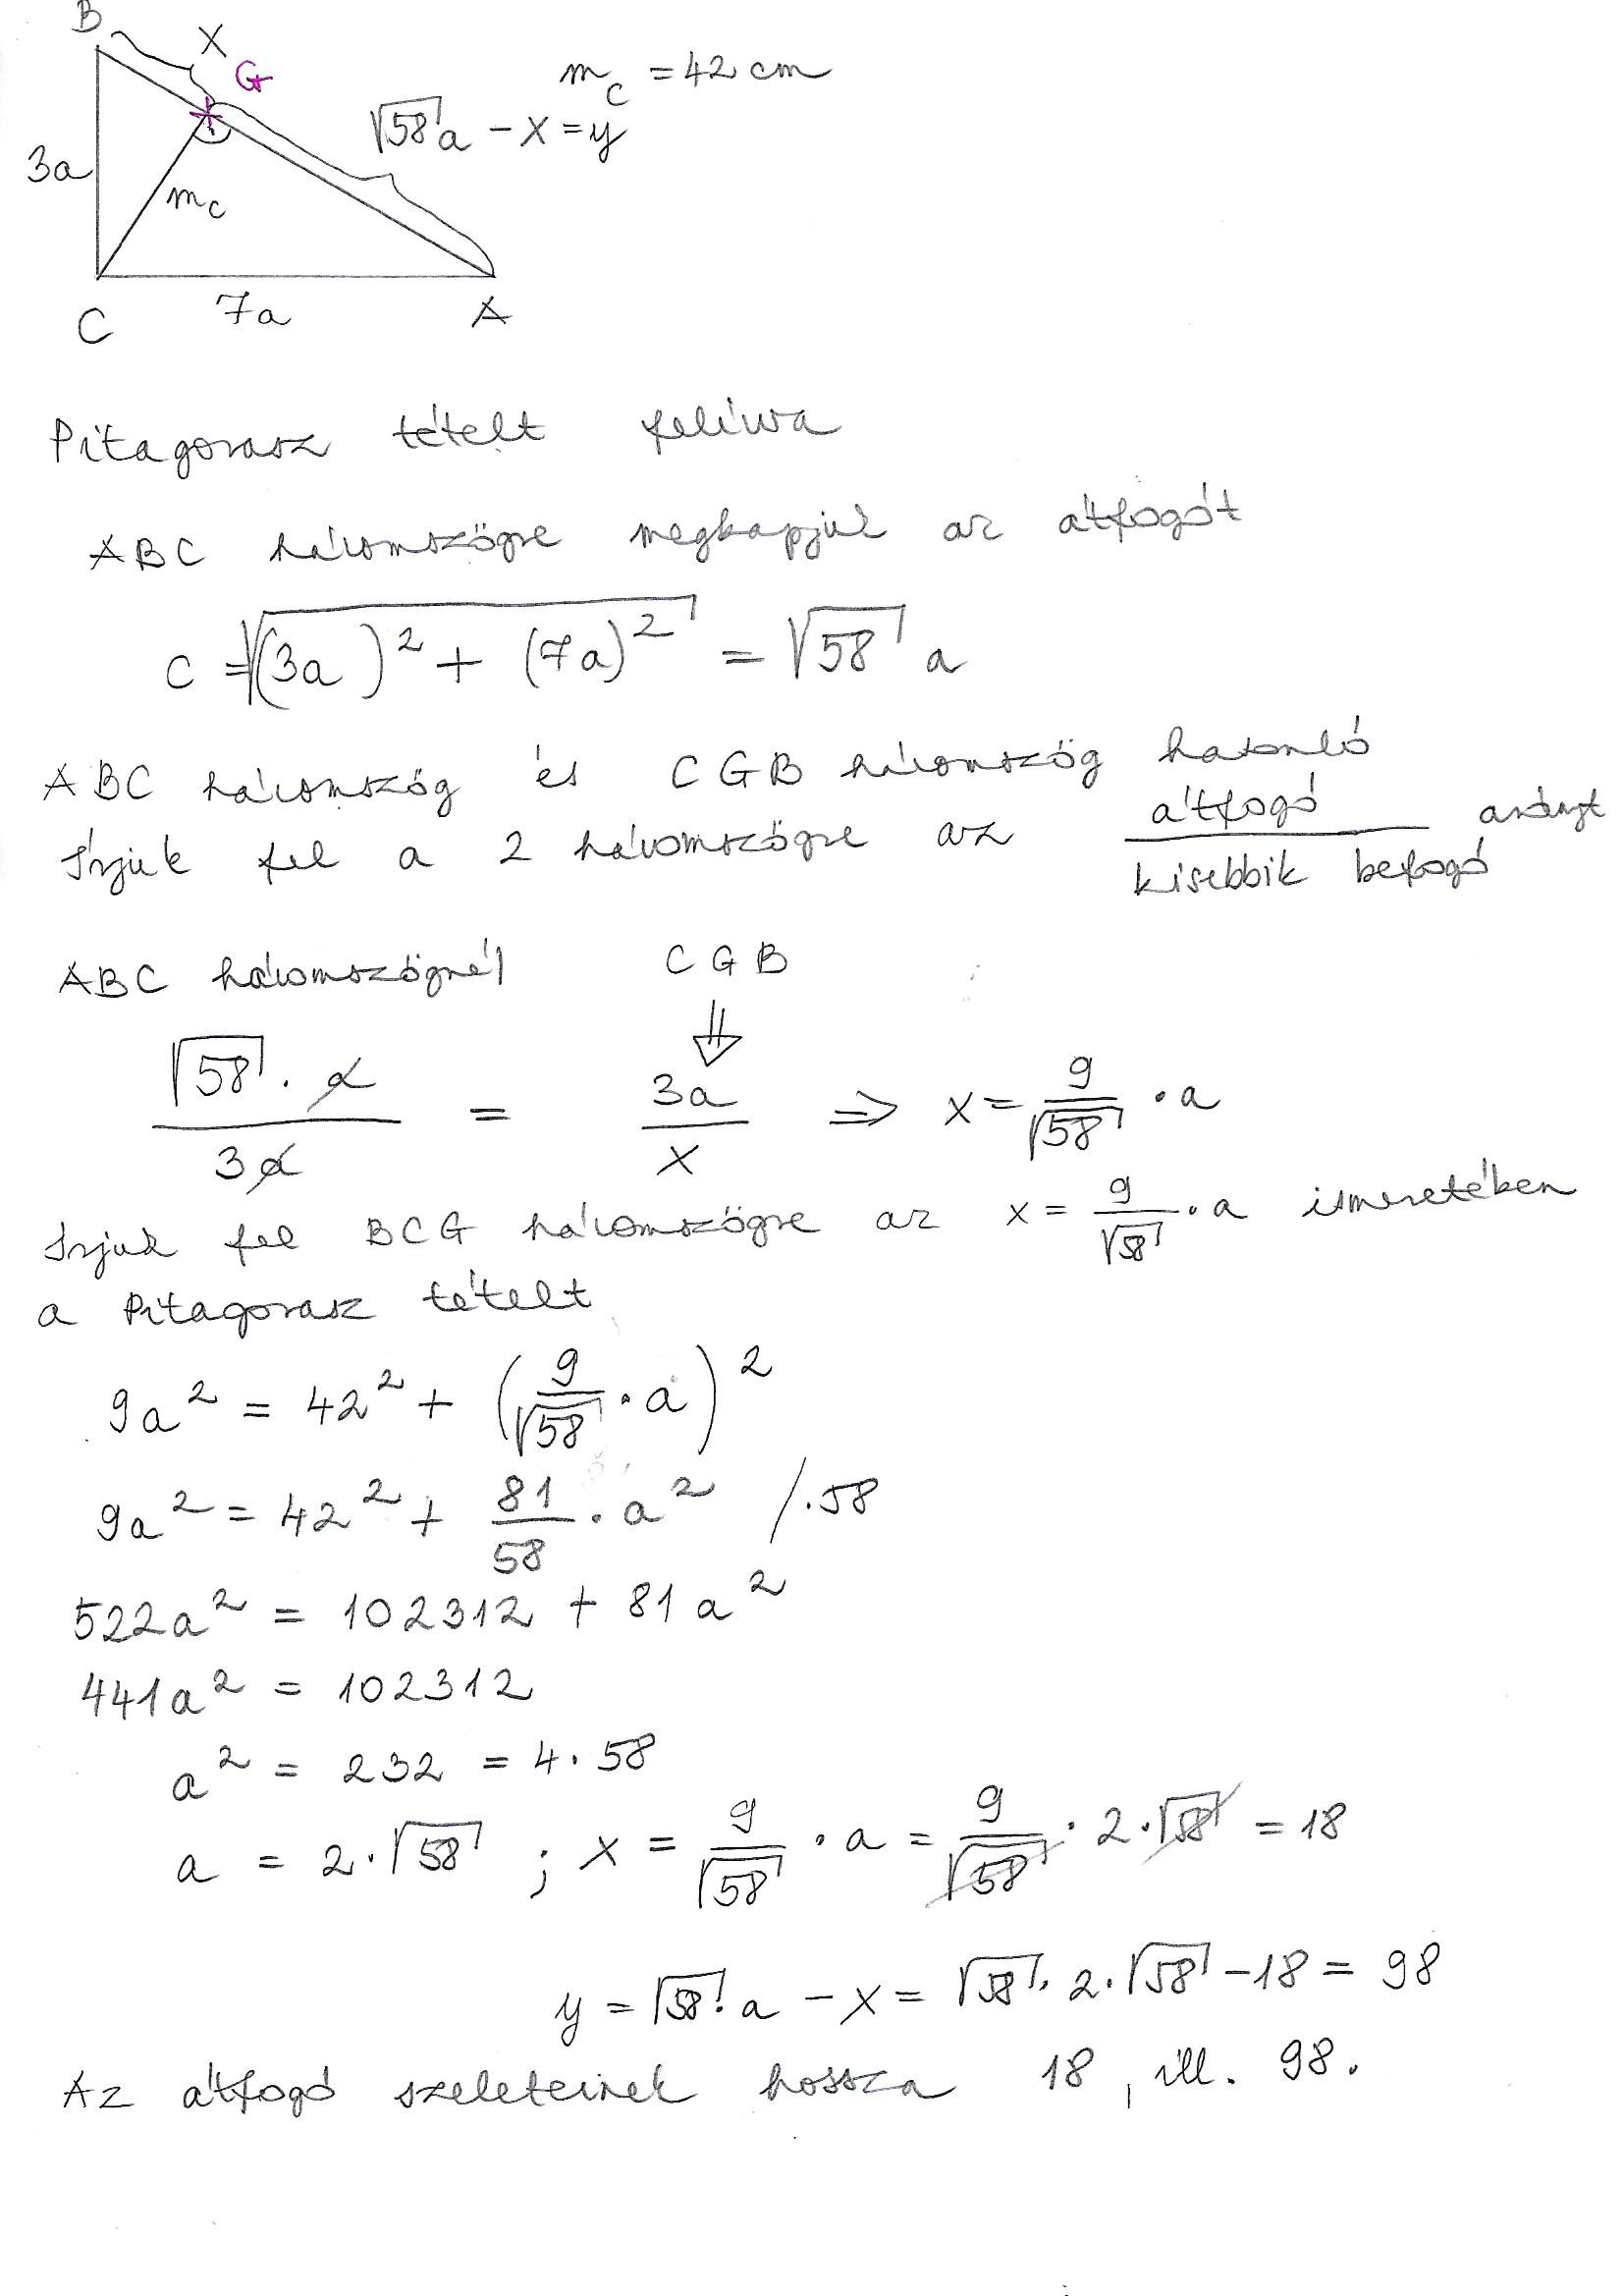 B
X
G
m_c = 42 cm
√58 a - x = y
3a
m_c
C
7a
A
Pitagorasz tételt felírva
ABC háromszögre megkapjuk az átfogót
c = √((3a)² + (7a)²) = √58 a
ABC háromszög és CGB háromszög hasonló
Írjuk fel a 2 háromszögre az átfogó / kisebbik befogó arányt
ABC háromszögnél CGB
⇓
√58 · a / 3a = 3a / x ⇒ x = 9/√58 · a
Írjuk fel BCG háromszögre az x = 9/√58 · a ismeretében
a Pitagorasz tételt
9a² = 42² + (9/√58 · a)²
9a² = 42² + 81/58 · a² /·58
522a² = 102312 + 81a²
441a² = 102312
a² = 232 = 4·58
a = 2·√58 ; x = 9/√58 · a = 9/√58 · 2·√58 = 18
y = √58·a - x = √58·2·√58 - 18 = 98
Az átfogó szeleteinek hossza 18, ill. 98.